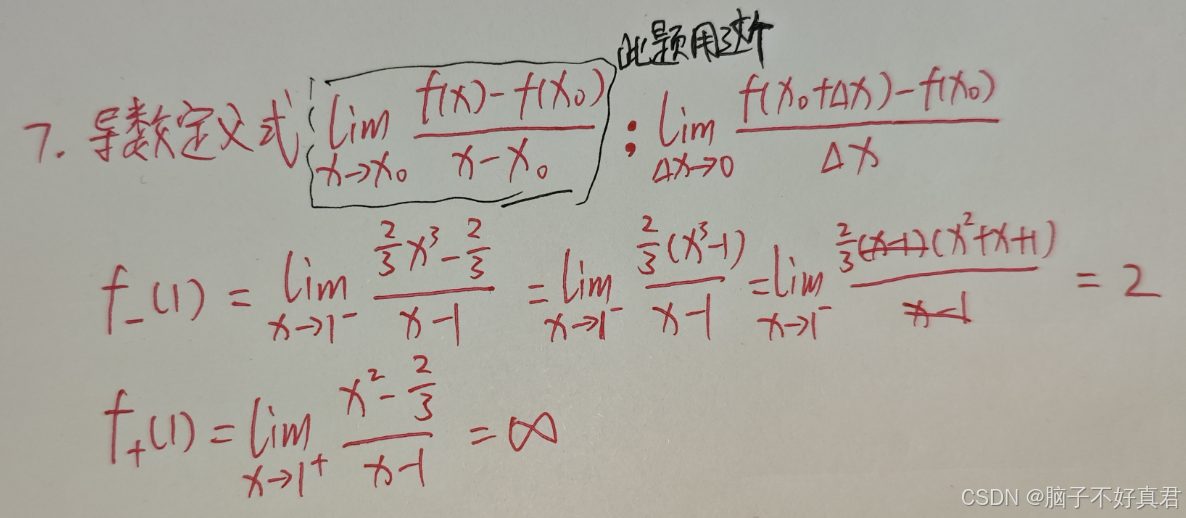 此题用这个
7. 导数定义式 lim x→x₀ (f(x)-f(x₀))/(x-x₀) ; lim Δx→0 (f(x₀+Δx)-f(x₀))/Δx
f₋(1) = lim x→1⁻ (2/3 x³ - 2/3)/(x-1) = lim x→1⁻ (2/3 (x³-1))/(x-1) = lim x→1⁻ (2/3 (x-1)(x²+x+1))/(x-1) = 2
f₊(1) = lim x→1⁺ (x² - 2/3)/(x-1) = ∞
CSDN @脑子不好真君